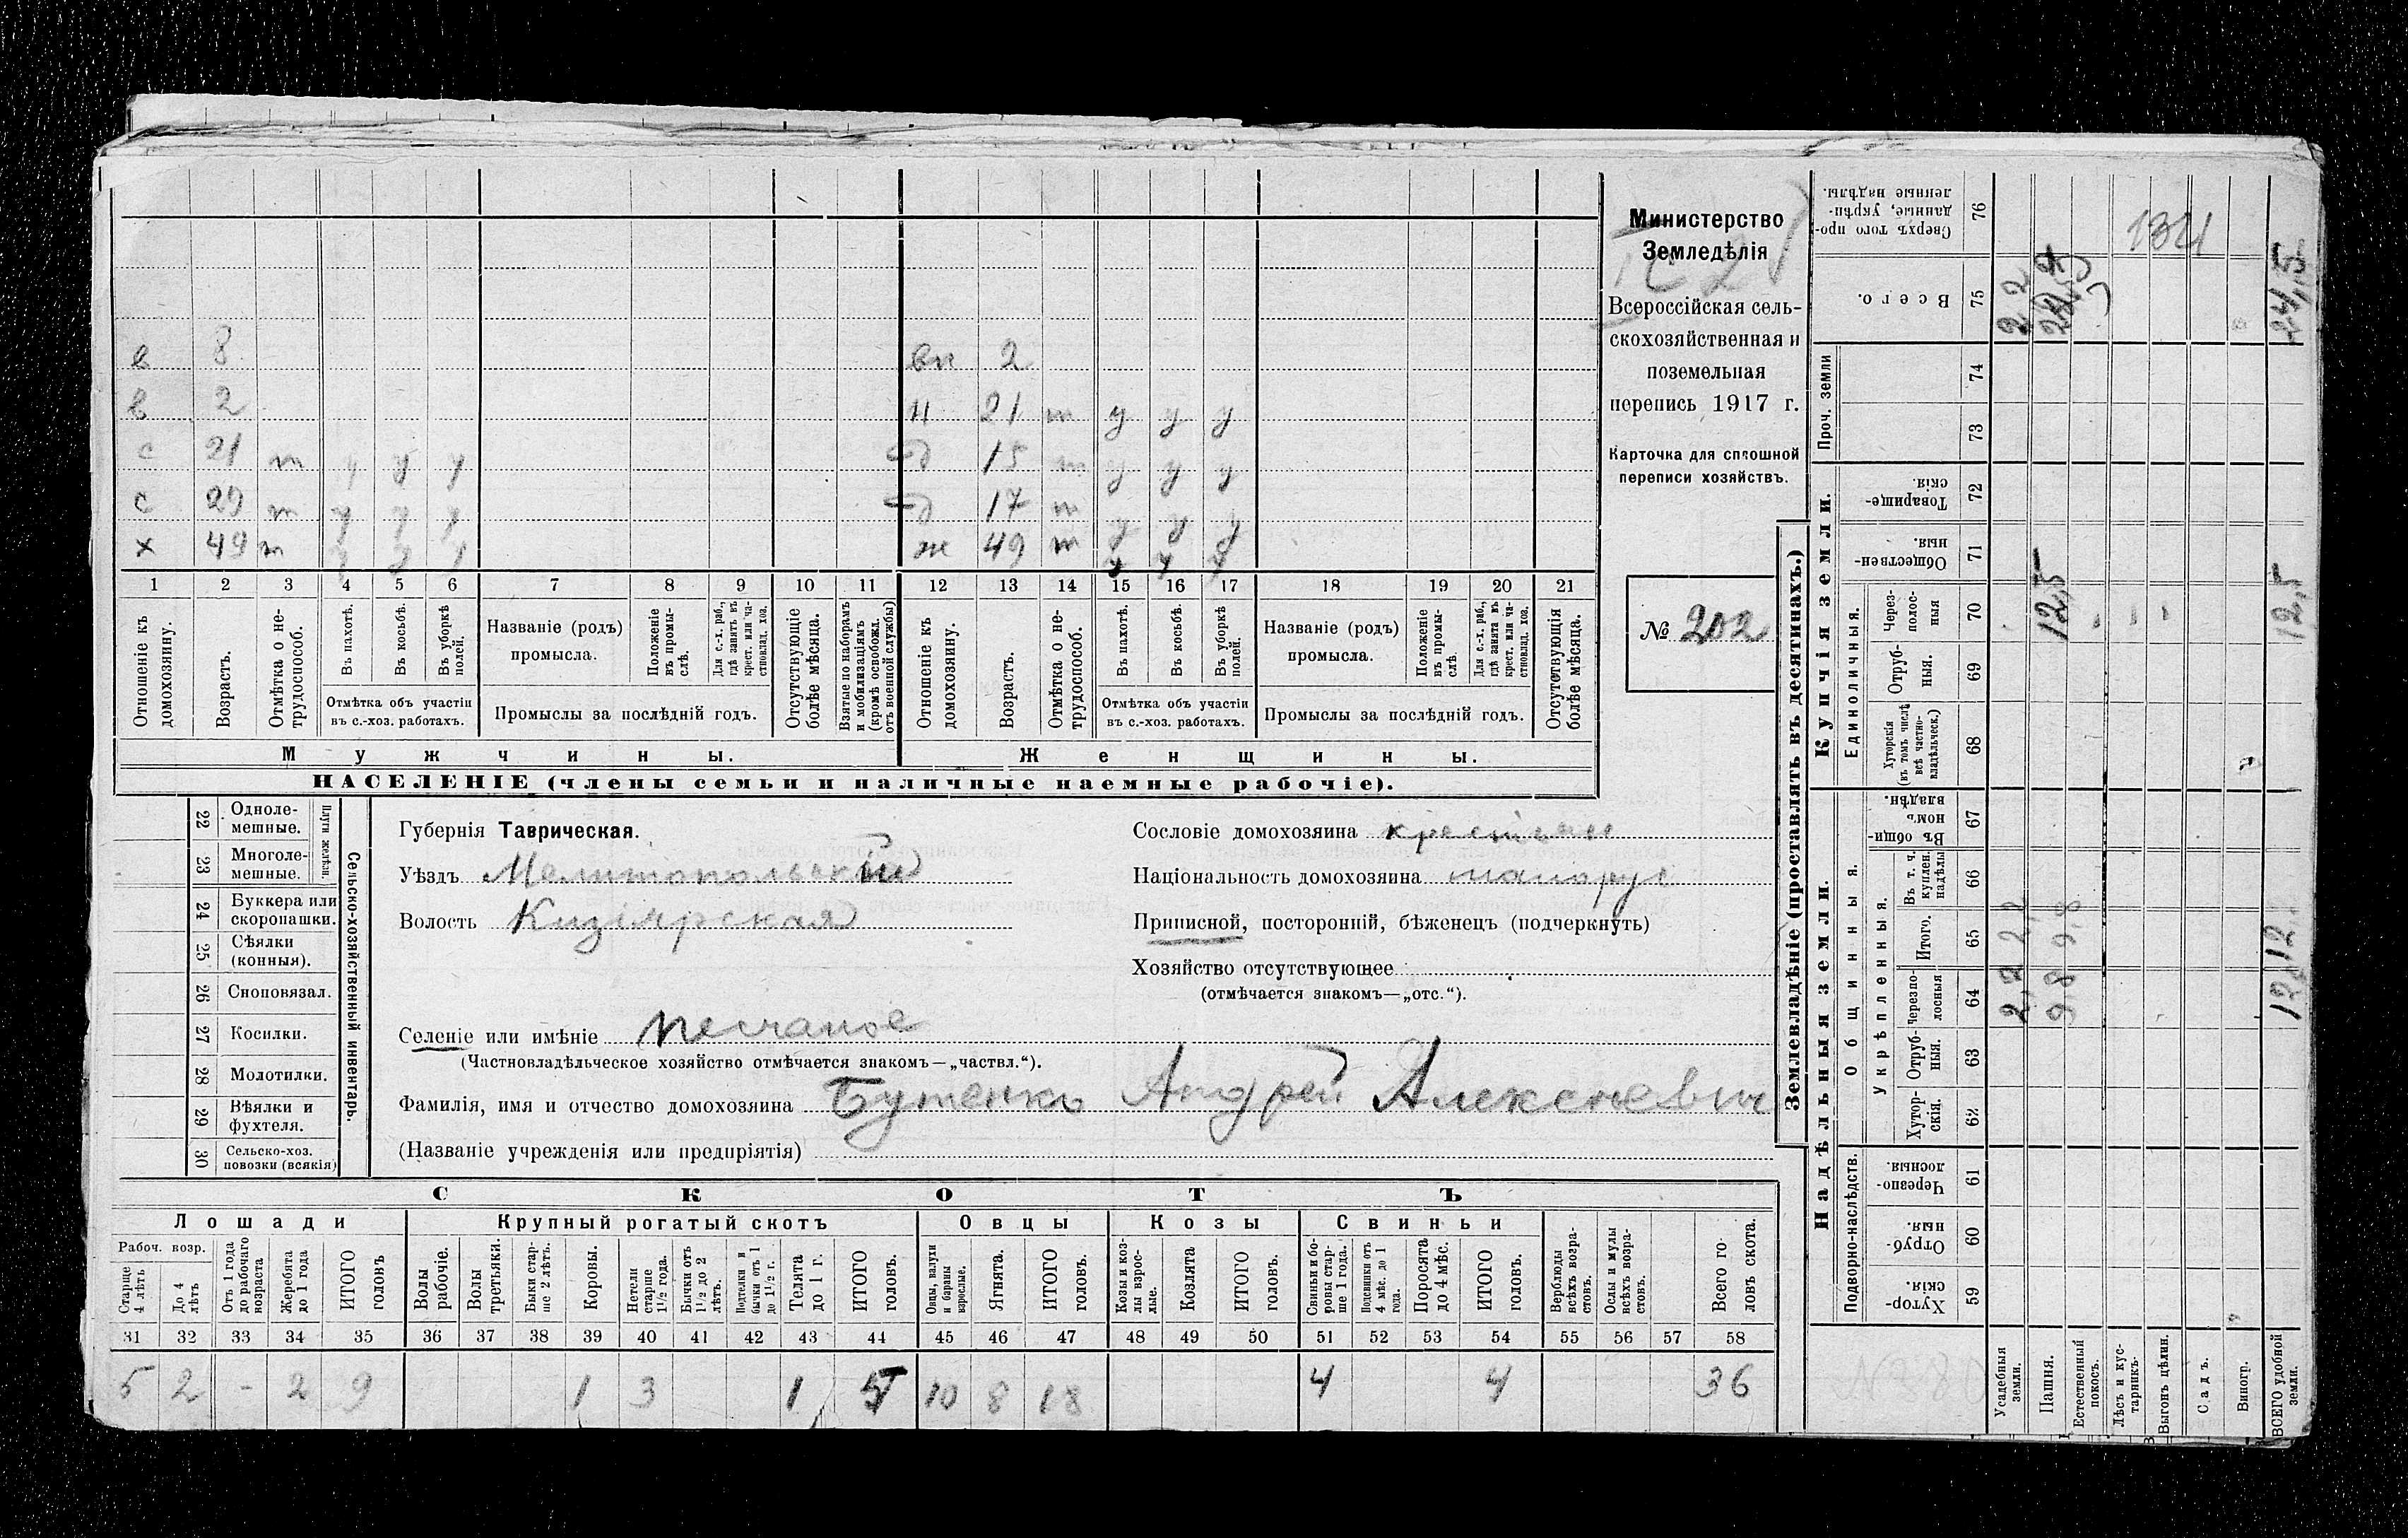 Министерство
Земледѣлія
Всероссійская сель-
скохозяйственная и
поземельная
перепись 1917 г.
Карточка для сплошной
переписи хозяйствъ.
№ 202
в 8 вн 2
в 2 н 21 т у у у
с 21 т у у у д 15 т у у у
с 29 т у у у д 17 т у у у
х 49 т у у у ж 49 т у у у
1 2 3 4 5 6 7 8 9 10 11 12 13 14 15 16 17 18 19 20 21
Отношеніе къ домохозяину.
Возрастъ.
Отмѣтка о не-трудоспособ.
Въ пахотѣ.
Въ косьбѣ.
Въ уборкѣ полей.
Отмѣтка объ участіи
въ с.-хоз. работахъ.
Названіе (родъ)
промысла.
Положеніе въ промы-слѣ.
Для с.-х. раб., гдѣ занятъ въ крест. или ча-стновлад. хоз.
Промыслы за послѣдній годъ.
Отсутствующіе болѣе мѣсяца.
Взятые по наборамъ и мобилизаціямъ (кромѣ освобожд. отъ военной службы)
Отношеніе къ домохозяину.
Возрастъ.
Отмѣтка о не-трудоспособ.
Въ пахотѣ.
Въ косьбѣ.
Въ уборкѣ полей.
Отмѣтка объ участіи
въ с.-хоз. работахъ.
Названіе (родъ)
промысла.
Положеніе въ промы-слѣ.
Для с.-х. раб., гдѣ занята въ крест. или ча-стновлад. хоз.
Промыслы за послѣдній годъ.
Отсутствующія болѣе мѣсяца.
Мужчины.
Женщины.
НАСЕЛЕНІЕ (члены семьи и наличные наемные рабочіе).
22 Одноле-мешные.
23 Многоле-мешные.
Плуги желѣзн.
24 Буккера или скоропашки.
25 Сѣялки (конныя).
26 Сноповязал.
27 Косилки.
28 Молотилки.
29 Вѣялки и фухтеля.
30 Сельско-хоз. повозки (всякія)
Сельско-хозяйственный инвентарь.
Губернія Таврическая.
Уѣздъ Мелитопольскій
Волость Кизіярская
Сословіе домохозяина крестьян
Національность домохозяина малорус
Приписной, посторонній, бѣженецъ (подчеркнуть)
Хозяйство отсутствующее
(отмѣчается знакомъ—„отс.“).
Селеніе или имѣніе Песчаное
(Частновладѣльческое хозяйство отмѣчается знакомъ—„частвл.“).
Фамилія, имя и отчество домохозяина Бутенко Андрей Алексѣевич
(Названіе учрежденія или предпріятія)
СКОТЪ
Лошади Крупный рогатый скотъ Овцы Козы Свиньи
Рабоч. возр.
Старше 4 лѣтъ
До 4 лѣтъ
Отъ 1 года до рабочаго возраста
Жеребята до 1 года
ИТОГО головъ
Волы рабочіе.
Волы третьяки.
Быки стар-ше 2 лѣтъ.
Коровы.
Нетели старше 1½ года.
Бычки отъ 1½ до 2 лѣтъ.
Подтелки и бычки отъ 1 до 1½ г.
Телята до 1 г.
ИТОГО головъ.
Овцы, валухи и бараны взрослые.
Ягнята.
ИТОГО головъ.
Козы и коз-лы взрос-лые.
Козлята
ИТОГО головъ.
Свиньи и бо-ровы стар-ше 1 года.
Подсвинки отъ 4 мѣс. до 1 года.
Поросята до 4 мѣс.
ИТОГО головъ.
Верблюды всѣхъ возра-стовъ.
Ослы и мулы всѣхъ возра-стовъ.
Всего го-ловъ скота.
31 32 33 34 35 36 37 38 39 40 41 42 43 44 45 46 47 48 49 50 51 52 53 54 55 56 57 58
5 2 - 2 9 1 3 1 5 10 8 18 4 4 36
Землевладѣніе (проставлять въ десятинахъ.)
Надѣльныя земли.
Купчія земли.
Проч. земли
Сверхъ того про-данные, укрѣп-ленные надѣлы. 76
134
Всего. 75 24,5
74
73
Товарище-скія. 72
Обществен-ныя. 71
Единоличныя.
Через-полос-ныя 70 12,5 12,5
Отруб-ныя. 69
Хуторскія (въ томъ числѣ всѣ частно-владѣльческ.) 68
Общинныя.
Въ общин-номъ владѣн. 67
Укрѣпленныя.
Въ т. ч. куплен. надѣлы 66
Итого. 65 2,2 9,8 12
Черезпо-лосныя 64 2,2 9,8 12
Отруб-ныя. 63
Хутор-скія. 62
Подворно-наслѣдств.
Черезпо-лосныя 61
Отруб-ныя. 60
Хутор-скія. 59
Усадебныя земли.
Пашня.
Естественный покосъ.
Лѣсъ и кус-тарникъ.
Выгонъ цѣлин.
Садъ.
Виногр.
ВСЕГО удобной земли.